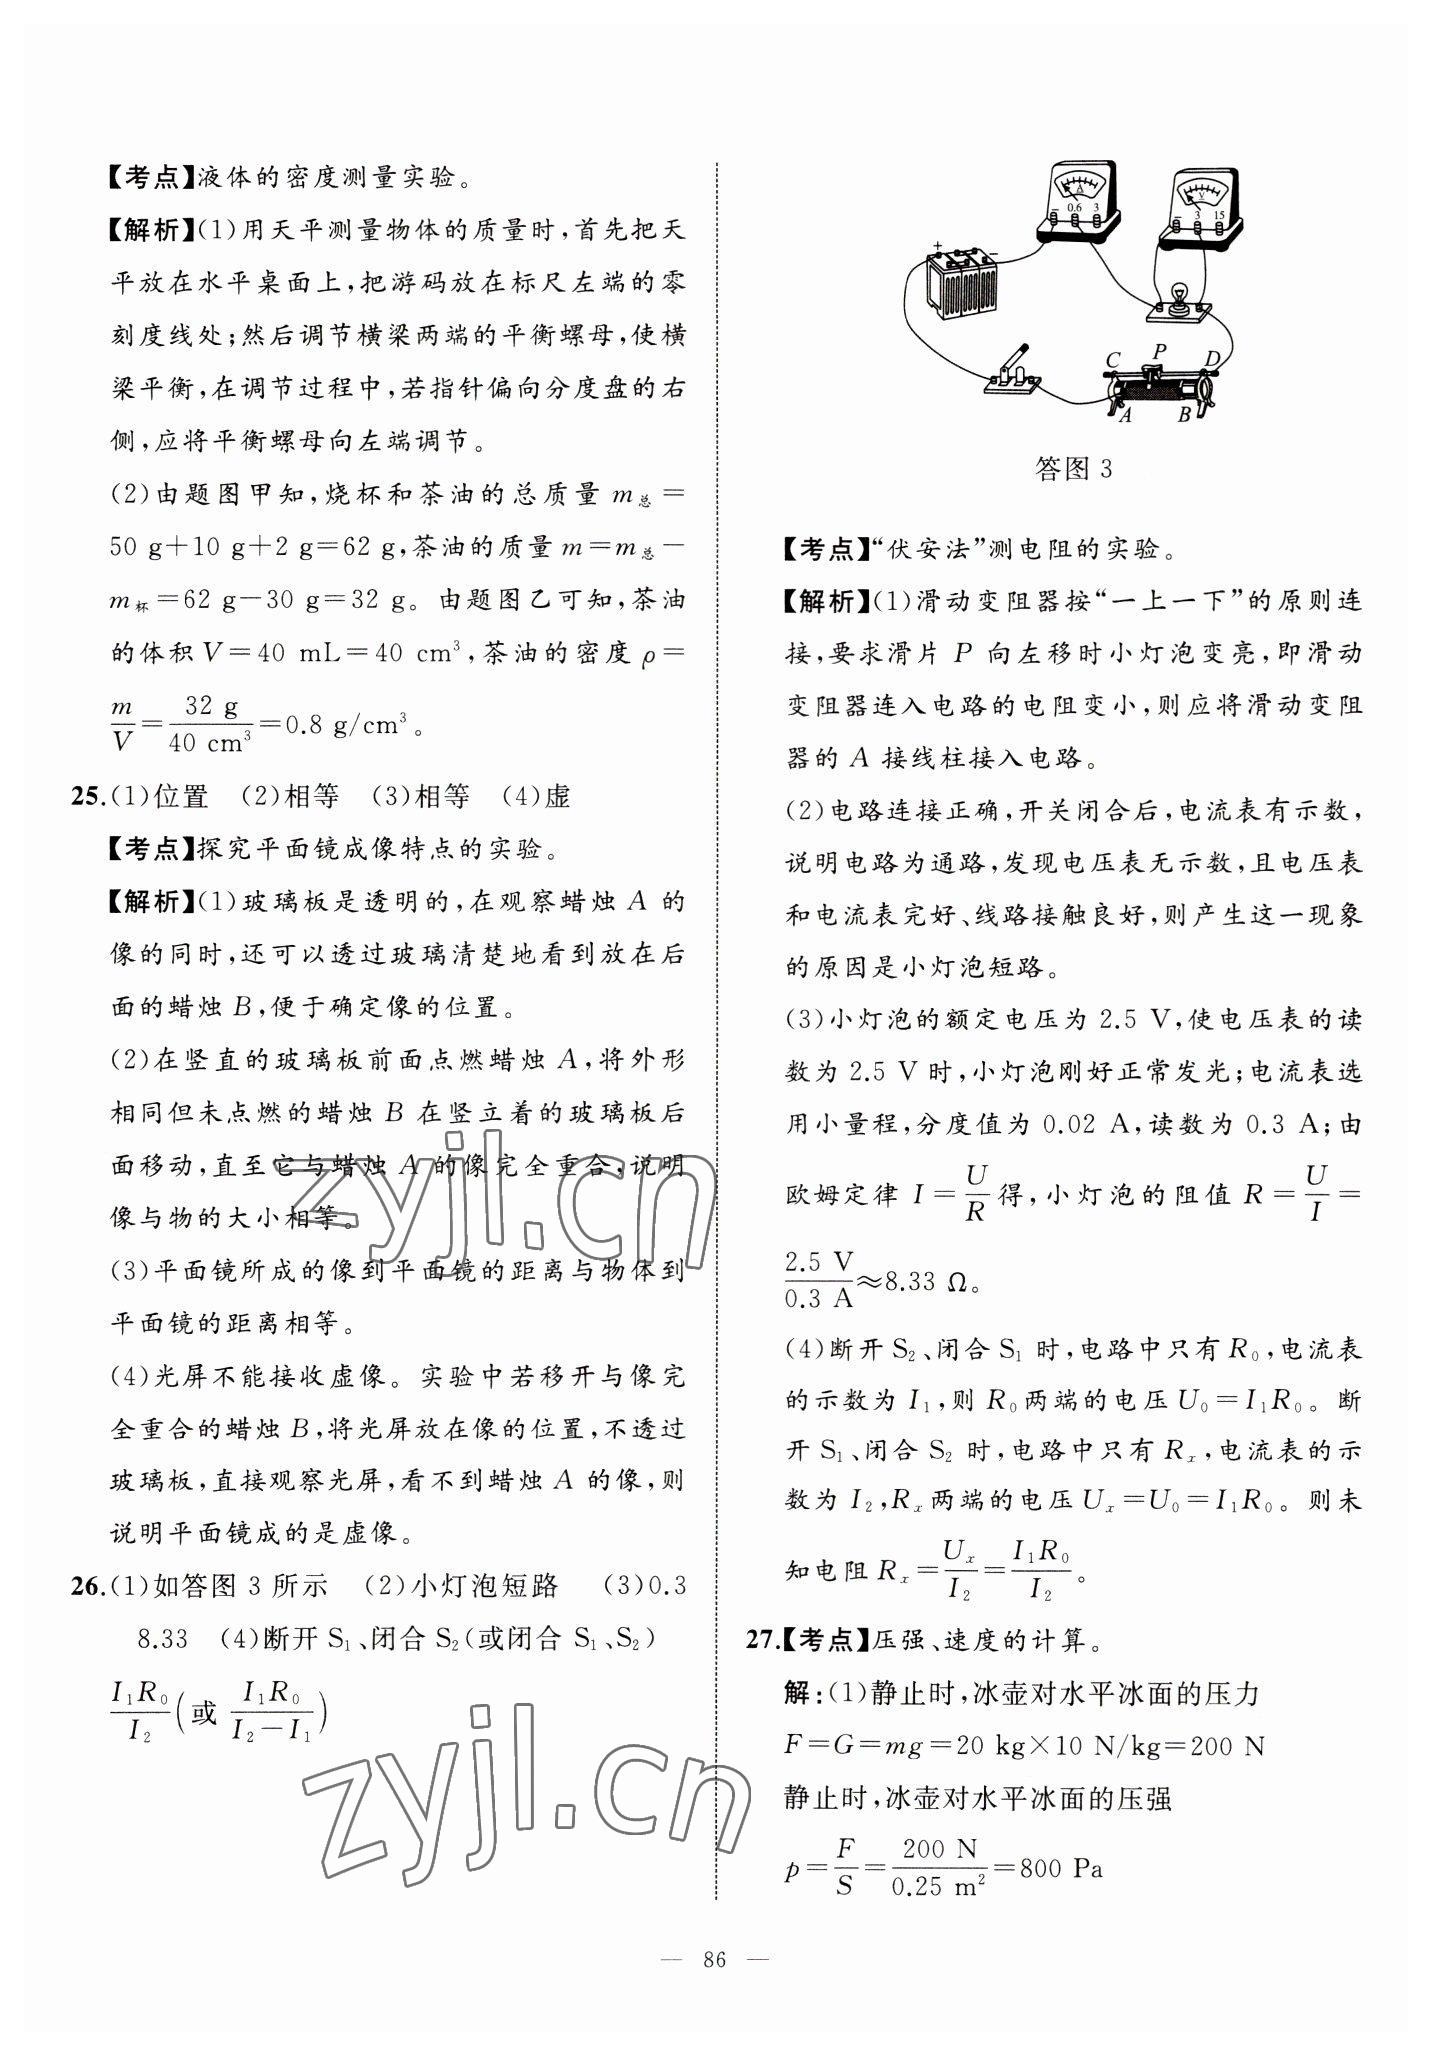 【考点】液体的密度测量实验。
【解析】(1)用天平测量物体的质量时,首先把天
平放在水平桌面上,把游码放在标尺左端的零
刻度线处;然后调节横梁两端的平衡螺母,使横
梁平衡,在调节过程中,若指针偏向分度盘的右
侧,应将平衡螺母向左端调节。
(2)由题图甲知,烧杯和茶油的总质量 m总=
50 g+10 g+2 g=62 g,茶油的质量 m=m总-
m杯=62 g-30 g=32 g。由题图乙可知,茶油
的体积 V=40 mL=40 cm³,茶油的密度 ρ=
m/V=32 g/40 cm³=0.8 g/cm³。
25.(1)位置 (2)相等 (3)相等 (4)虚
【考点】探究平面镜成像特点的实验。
【解析】(1)玻璃板是透明的,在观察蜡烛 A 的
像的同时,还可以透过玻璃清楚地看到放在后
面的蜡烛 B,便于确定像的位置。
(2)在竖直的玻璃板前面点燃蜡烛 A,将外形
相同但未点燃的蜡烛 B 在竖立着的玻璃板后
面移动,直至它与蜡烛 A 的像完全重合,说明
像与物的大小相等。
(3)平面镜所成的像到平面镜的距离与物体到
平面镜的距离相等。
(4)光屏不能接收虚像。实验中若移开与像完
全重合的蜡烛 B,将光屏放在像的位置,不透过
玻璃板,直接观察光屏,看不到蜡烛 A 的像,则
说明平面镜成的是虚像。
26.(1)如答图 3 所示 (2)小灯泡短路 (3)0.3
8.33 (4)断开 S₁、闭合 S₂(或闭合 S₁、S₂)
I₁R₀/I₂(或 I₁R₀/(I₂-I₁))
A
- 0.6 3
V
- 3 15
+ -
C P D
A B
答图 3
【考点】“伏安法”测电阻的实验。
【解析】(1)滑动变阻器按“一上一下”的原则连
接,要求滑片 P 向左移时小灯泡变亮,即滑动
变阻器连入电路的电阻变小,则应将滑动变阻
器的 A 接线柱接入电路。
(2)电路连接正确,开关闭合后,电流表有示数,
说明电路为通路,发现电压表无示数,且电压表
和电流表完好、线路接触良好,则产生这一现象
的原因是小灯泡短路。
(3)小灯泡的额定电压为 2.5 V,使电压表的读
数为 2.5 V 时,小灯泡刚好正常发光;电流表选
用小量程,分度值为 0.02 A,读数为 0.3 A;由
欧姆定律 I=U/R得,小灯泡的阻值 R=U/I=
2.5 V/0.3 A≈8.33 Ω。
(4)断开 S₂、闭合 S₁ 时,电路中只有 R₀,电流表
的示数为 I₁,则 R₀两端的电压 U₀=I₁R₀。断
开 S₁、闭合 S₂ 时,电路中只有 Rₓ,电流表的示
数为 I₂,Rₓ两端的电压 Uₓ=U₀=I₁R₀。则未
知电阻 Rₓ=Uₓ/I₂=I₁R₀/I₂。
27.【考点】压强、速度的计算。
解:(1)静止时,冰壶对水平冰面的压力
F=G=mg=20 kg×10 N/kg=200 N
静止时,冰壶对水平冰面的压强
p=F/S=200 N/0.25 m²=800 Pa
— 86 —
zyjl.cn
zyjl.cn